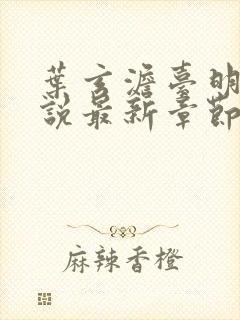 葉玄澹臺明
說最新章節
麻辣香橙